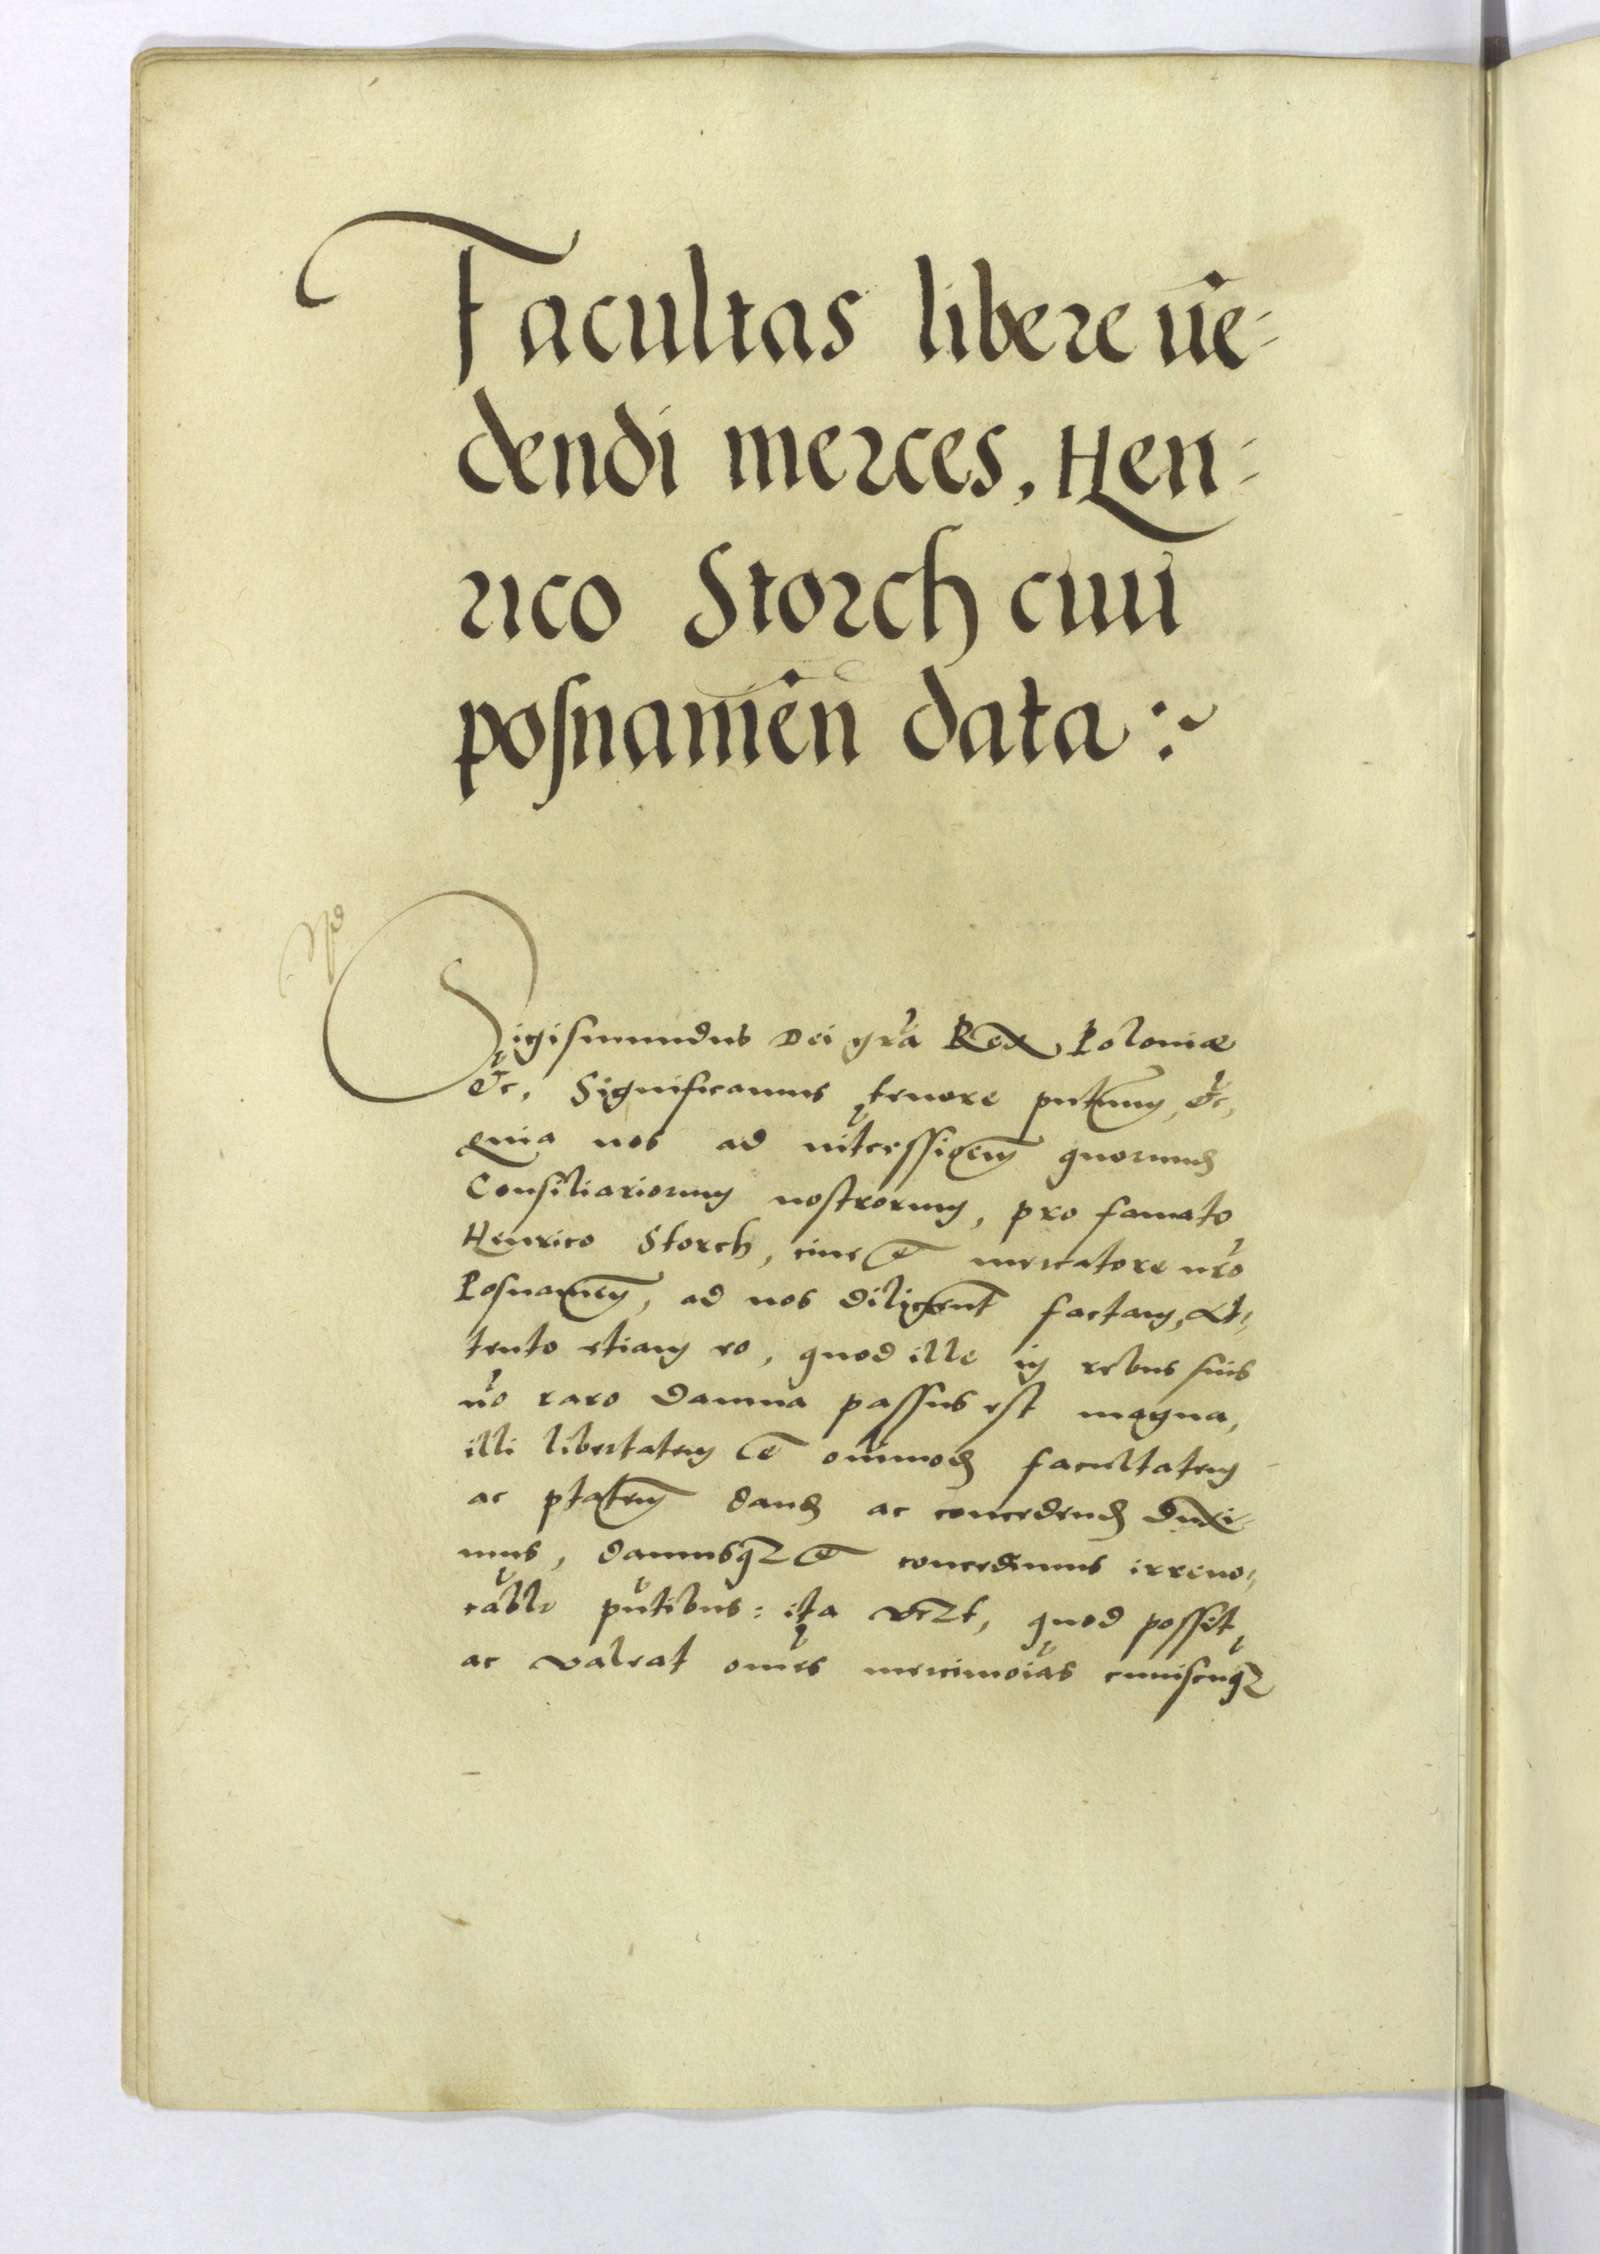 Facultas libere vē-
dendi merces, Hen-
rico Storch ciui
posnamēn data :~
Sigismundus Dei gra Rex Poloniæ
etc, Significamus tenore pntium, etc,
Quia nos ad intcessionem quorund
Consiliariorum nostrorum, pro famato
Henrico Storch, ciue et mercatore nro
Posnamen, ad nos diligent factam, At-
tento etiam eo, quod ille in rebus suis
no raro damna passus est magna,
illi libertatem et omimod facultatem
ac ptatem dand ac concedend duxi-
mus, damusqz et concedimus irreuo-
cable pntibus: ita vczt, quod possit
ac valeat omes mercimoias cuiuscunqz